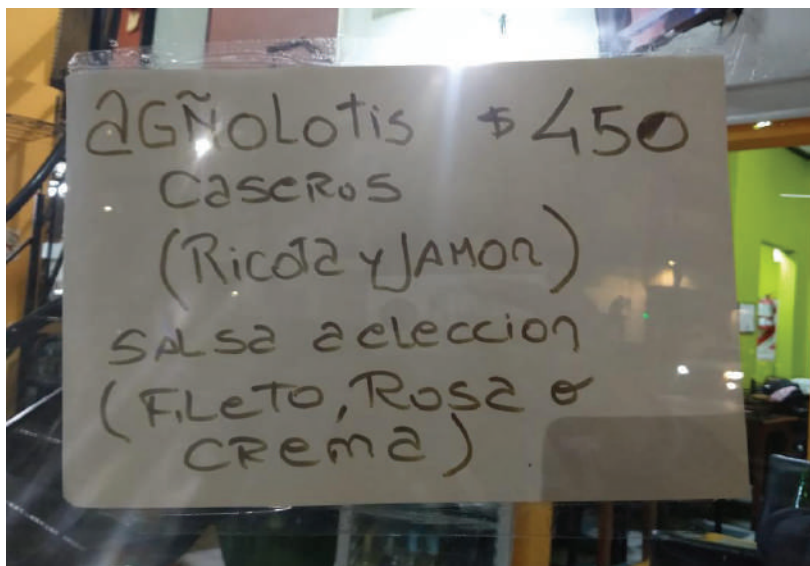 aGÑOLOtis $450
caseRos
(Ricota y JAMON)
SALSa a eleccion
(FiLeTO, ROSa o
CRema)